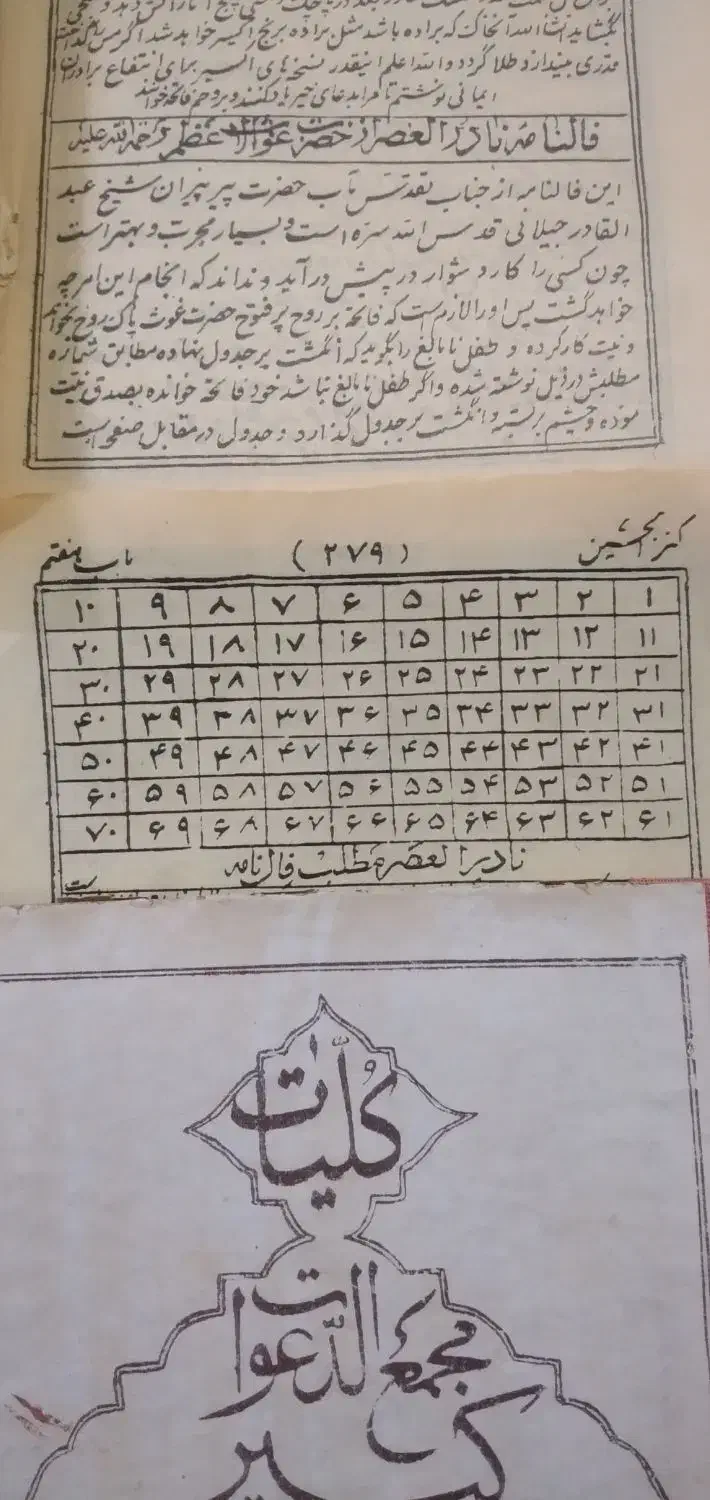 بگشاید انشاالله آنخاکت که براده باشد مثل براده برنج اکسیر خواهد شد اگر مس
قدری بیندازد طلا گردد والله اعلم اینقدر نسخه های اکسیر برای انتفاع برادران
ایمانی نوشتم تا مرا بدعای خیر یاد کنند و بروحم فاتحه خوانند
فالنامه نادر العصر از حضرت غوث الاعظم رحمة الله علیه
این فالنامه از جناب تقدس مآب حضرت پیر پیران شیخ عبد
القادر جیلانی قدس الله سره است و بسیار مجرب و بهتر است
چون کسی را کار دشوار در پیش در آید و نداند که انجام این امر چه
خواهد گشت پس او را لازم است که فاتحه بر روح پر فتوح حضرت غوث پاک روح بخواند
و نیت کار کرده و طفل نابالغ را بگوید که انگشت بر جدول نهاده مطابق شماره
مطلبش در ذیل نوشته شده و اگر طفل نابالغ نباشد خود فاتحه خوانده بصدق نیت
نموده و چشم بسته و انگشت بر جدول گذارد و جدول در مقابل صفحه است
کنز الحسین (۲۷۹) باب هفتم
۱ ۲ ۳ ۴ ۵ ۶ ۷ ۸ ۹ ۱۰
۱۱ ۱۲ ۱۳ ۱۴ ۱۵ ۱۶ ۱۷ ۱۸ ۱۹ ۲۰
۲۱ ۲۲ ۲۳ ۲۴ ۲۵ ۲۶ ۲۷ ۲۸ ۲۹ ۳۰
۳۱ ۳۲ ۳۳ ۳۴ ۳۵ ۳۶ ۳۷ ۳۸ ۳۹ ۴۰
۴۱ ۴۲ ۴۳ ۴۴ ۴۵ ۴۶ ۴۷ ۴۸ ۴۹ ۵۰
۵۱ ۵۲ ۵۳ ۵۴ ۵۵ ۵۶ ۵۷ ۵۸ ۵۹ ۶۰
۶۱ ۶۲ ۶۳ ۶۴ ۶۵ ۶۶ ۶۷ ۶۸ ۶۹ ۷۰
نادر العصر مطلب فال نامه
کلیات
مجمع الدعوات
کبیر